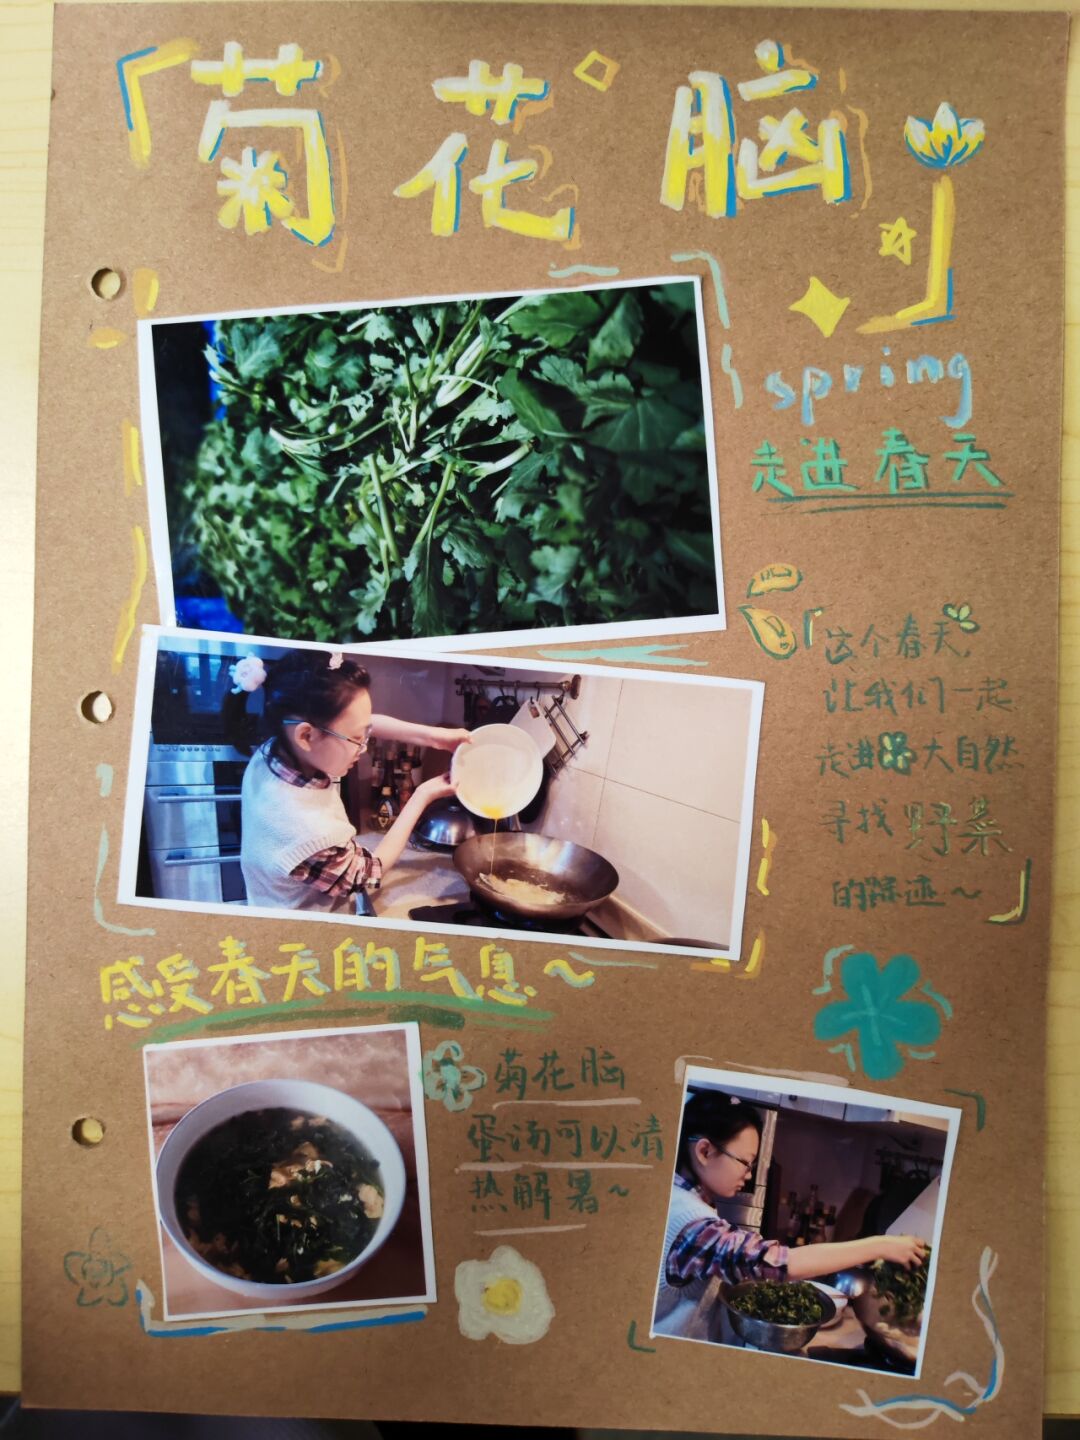 「菊花脑」
spring
走进春天
「这个春天,
让我们一起
走进大自然
寻找野菜
的踪迹~」
感受春天的气息~
菊花脑
蛋汤可以清
热解暑~